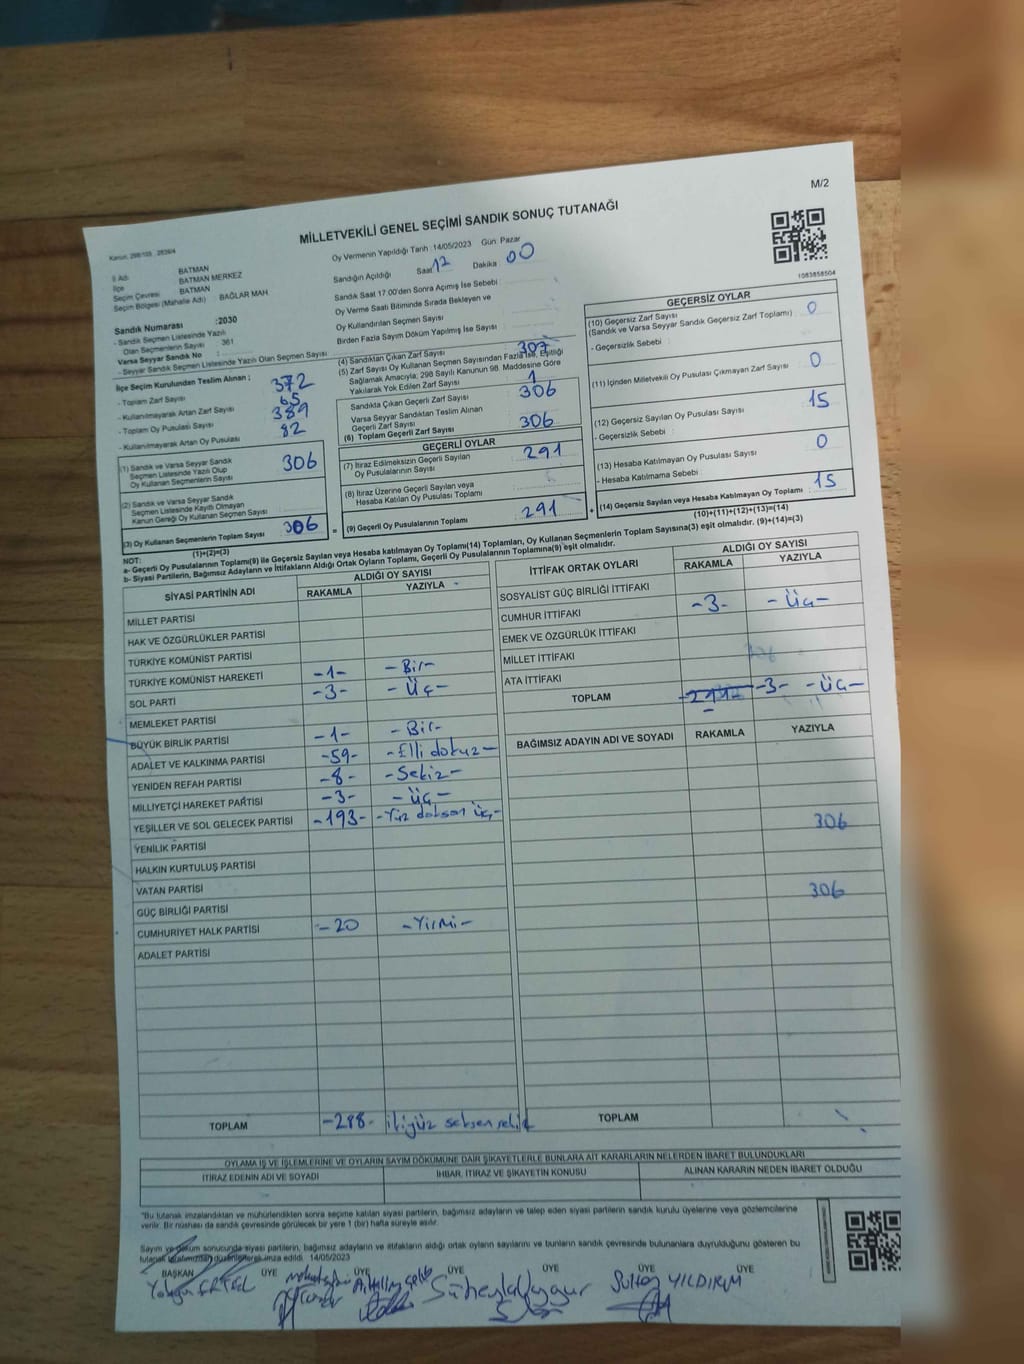 M/2
MİLLETVEKİLİ GENEL SEÇİMİ SANDIK SONUÇ TUTANAĞI
Oy Vermenin Yapıldığı Tarih :14/05/2023 Gün: Pazar
Sandığın Açıldığı Saat 12 Dakika 00
Sandık Saat 17:00'den Sonra Açılmış İse Sebebi
Oy Verme Saati Bitiminde Sırada Bekleyen ve
Oy Kullandırılan Seçmen Sayısı
Birden Fazla Sayım Döküm Yapılmış İse Sayısı
1083858504
İl Adı BATMAN
İlçe BATMAN MERKEZ
Seçim Çevresi BATMAN
Seçim Bölgesi (Mahalle Adı) : BAĞLAR MAH
Sandık Numarası :2030
- Sandık Seçmen Listesinde Yazılı
Olan Seçmenlerin Sayısı 361
Varsa Seyyar Sandık No :
- Seyyar Sandık Seçmen Listesinde Yazılı Olan Seçmen Sayısı :
İlçe Seçim Kurulundan Teslim Alınan ;
- Toplam Zarf Sayısı 372
- Kullanılmayarak Artan Zarf Sayısı 65
- Toplam Oy Pusulası Sayısı 389
- Kullanılmayarak Artan Oy Pusulası 82
(1) Sandık ve Varsa Seyyar Sandık
Seçmen Listesinde Yazılı Olup
Oy Kullanan Seçmenlerin Sayısı 306
(2) Sandık ve Varsa Seyyar Sandık
Seçmen Listesinde Kayıtlı Olmayan
Kanun Gereği Oy Kullanan Seçmen Sayısı
(3) Oy Kullanan Seçmenlerin Toplam Sayısı 306
(1)+(2)=(3)
(4) Sandıktan Çıkan Zarf Sayısı 307
(5) Zarf Sayısı Oy Kullanan Seçmen Sayısından Fazla İse, Eşitliği
Sağlamak Amacıyla; 298 Sayılı Kanunun 98. Maddesine Göre
Yakılarak Yok Edilen Zarf Sayısı 1
Sandıkta Çıkan Geçerli Zarf Sayısı 306
Varsa Seyyar Sandıktan Teslim Alınan
Geçerli Zarf Sayısı
(6) Toplam Geçerli Zarf Sayısı 306
GEÇERLİ OYLAR
(7) İtiraz Edilmeksizin Geçerli Sayılan
Oy Pusulalarının Sayısı 291
(8) İtiraz Üzerine Geçerli Sayılan veya
Hesaba Katılan Oy Pusulası Toplamı
= (9) Geçerli Oy Pusulalarının Toplamı 291 +
GEÇERSİZ OYLAR
(10) Geçersiz Zarf Sayısı 0
(Sandık ve Varsa Seyyar Sandık Geçersiz Zarf Toplamı)
- Geçersizlik Sebebi
(11) İçinden Milletvekili Oy Pusulası Çıkmayan Zarf Sayısı 0
(12) Geçersiz Sayılan Oy Pusulası Sayısı 15
- Geçersizlik Sebebi
(13) Hesaba Katılmayan Oy Pusulası Sayısı 0
- Hesaba Katılmama Sebebi
(14) Geçersiz Sayılan veya Hesaba Katılmayan Oy Toplamı 15
(10)+(11)+(12)+(13)=(14)
NOT:
a- Geçerli Oy Pusulalarının Toplamı(9) ile Geçersiz Sayılan veya Hesaba katılmayan Oy Toplamı(14) Toplamları, Oy Kullanan Seçmenlerin Toplam Sayısına(3) eşit olmalıdır. (9)+(14)=(3)
b- Siyasi Partilerin, Bağımsız Adayların ve İttifakların Aldığı Ortak Oyların Toplamı, Geçerli Oy Pusulalarının Toplamına(9) eşit olmalıdır.
SİYASİ PARTİNİN ADI ALDIĞI OY SAYISI
RAKAMLA YAZIYLA
MİLLET PARTİSİ
HAK VE ÖZGÜRLÜKLER PARTİSİ
TÜRKİYE KOMÜNİST PARTİSİ
TÜRKİYE KOMÜNİST HAREKETİ -1- -Bir-
SOL PARTİ -3- -Üç-
MEMLEKET PARTİSİ
BÜYÜK BİRLİK PARTİSİ -1- -Bir-
ADALET VE KALKINMA PARTİSİ -59- -Elli dokuz-
YENİDEN REFAH PARTİSİ -8- -Sekiz-
MİLLİYETÇİ HAREKET PARTİSİ -3- -Üç-
YEŞİLLER VE SOL GELECEK PARTİSİ -193- -Yüz doksan üç-
YENİLİK PARTİSİ
HALKIN KURTULUŞ PARTİSİ
VATAN PARTİSİ
GÜÇ BİRLİĞİ PARTİSİ
CUMHURİYET HALK PARTİSİ -20 -Yirmi-
ADALET PARTİSİ
TOPLAM -288- ikiyüz seksen sekiz
İTTİFAK ORTAK OYLARI ALDIĞI OY SAYISI
RAKAMLA YAZIYLA
SOSYALİST GÜÇ BİRLİĞİ İTTİFAKI
CUMHUR İTTİFAKI -3- -Üç-
EMEK VE ÖZGÜRLÜK İTTİFAKI
MİLLET İTTİFAKI 306
ATA İTTİFAKI
TOPLAM -3- -Üç-
BAĞIMSIZ ADAYIN ADI VE SOYADI RAKAMLA YAZIYLA
306
306
TOPLAM
OYLAMA İŞ VE İŞLEMLERİNE VE OYLARIN SAYIM DÖKÜMÜNE DAİR ŞİKAYETLERLE BUNLARA AİT KARARLARIN NELERDEN İBARET BULUNDUKLARI
İTİRAZ EDENİN ADI VE SOYADI İHBAR, İTİRAZ VE ŞİKAYETİN KONUSU ALINAN KARARIN NEDEN İBARET OLDUĞU
"Bu tutanak imzalandıktan ve mühürlendikten sonra seçime katılan siyasi partilerin, bağımsız adayların ve talep eden siyasi partilerin sandık kurulu üyelerine veya gözlemcilerine
verilir. Bir nüshası da sandık çevresinde görülecek bir yere 1 (bir) hafta süreyle asılır.
Sayım ve döküm sonucunda siyasi partilerin, bağımsız adayların ve ittifakların aldığı ortak oyların sayılarını ve bunların sandık çevresinde bulunanlara duyrulduğunu gösteren bu
tutanak tarafımızdan düzenlenerek imza edildi. 14/05/2023
BAŞKAN ÜYE ÜYE ÜYE ÜYE ÜYE
Süheyla Uygur YILDIRIM